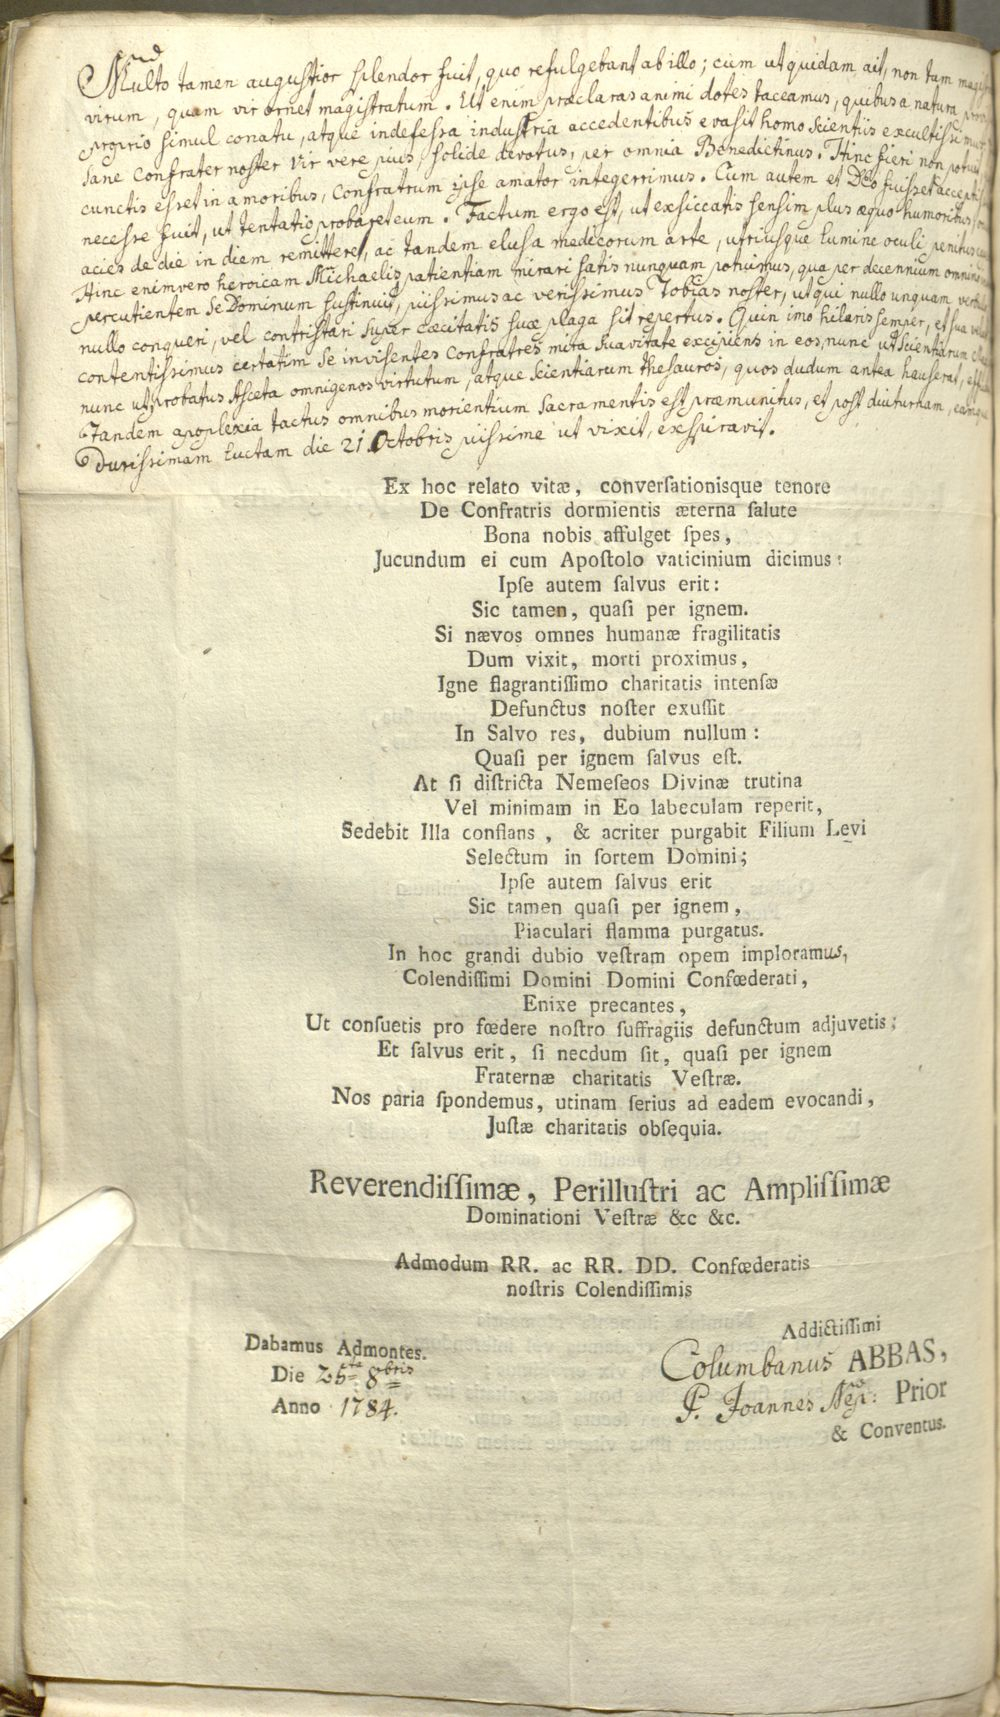 Multo tamen augustior splendor fuit, quo refulgebant ab illo; cum ut quidam ait, non tam
virum, quam vir ornet magistratum. Ut enim præclaras animi dotes taceamus, quibus a natura
proprio simul conatu, atque indefessa industria accedentibus evasit homo scientiis excultissimus
sane Confrater noster Vir vere pius, solide devotus, per omnia Benedictinus. Hinc fieri non potuit,
cunctis esset in amoribus, Confratrum ipse amator integerrimus. Cum autem et Deo fuisset
necesse fuit, ut tentatio probaret eum. Factum ergo est, ut exsiccatis sensim plus æquo humoribus
acies de die in diem remitteret, ac tandem elusa medicorum arte, utriusque lumine oculi penitus
Hinc enimvero heroicam Michaelis patientiam mirari satis nunquam potuimus, qua per decennium omnino
percutientem se Dominum sustinuit, piissimus ac verissimus Tobias noster, ut qui nullo unquam
nullo conqueri, vel contristari super cæcitatis suæ plaga sit repertus. Quin imo hilaris semper, et sua
contentissimus certatim se invisentes Confratres mira suavitate excipiens in eos, nunc ut scientiarum
nunc ut probatus Asceta omnigenos virtutum, atque scientiarum thesauros, quos dudum antea hauserat,
Tandem apoplexia tactus omnibus morientium Sacramentis est præmunitus, et post diuturnam, eamque
durissimam luctam die 21. Octobris piissime ut vixit, exspiravit.
Ex hoc relato vitæ, conversationisque tenore
De Confratris dormientis æterna salute
Bona nobis affulget spes,
Jucundum ei cum Apostolo vaticinium dicimus:
Ipse autem salvus erit:
Sic tamen, quasi per ignem.
Si nævos omnes humanæ fragilitatis
Dum vixit, morti proximus,
Igne flagrantissimo charitatis intensæ
Defunctus noster exussit
In Salvo res, dubium nullum:
Quasi per ignem salvus est.
At si districta Nemeseos Divinæ trutina
Vel minimam in Eo labeculam reperit,
Sedebit Illa conflans, & acriter purgabit Filium Levi
Selectum in sortem Domini;
Ipse autem salvus erit
Sic tamen quasi per ignem,
Piaculari flamma purgatus.
In hoc grandi dubio vestram opem imploramus,
Colendissimi Domini Domini Confœderati,
Enixe precantes,
Ut consuetis pro fœdere nostro suffragiis defunctum adjuvetis;
Et salvus erit, si necdum sit, quasi per ignem
Fraternæ charitatis Vestræ.
Nos paria spondemus, utinam serius ad eadem evocandi,
Justæ charitatis obsequia.
Reverendissimæ, Perillustri ac Amplissimæ
Dominationi Vestræ &c &c.
Admodum RR. ac RR. DD. Confœderatis
nostris Colendissimis
Addictissimi
Dabamus Admontes.
Columbanus ABBAS,
Die 26ta 8bris
P. Joannes Prior
Anno 1784.
& Conventus.